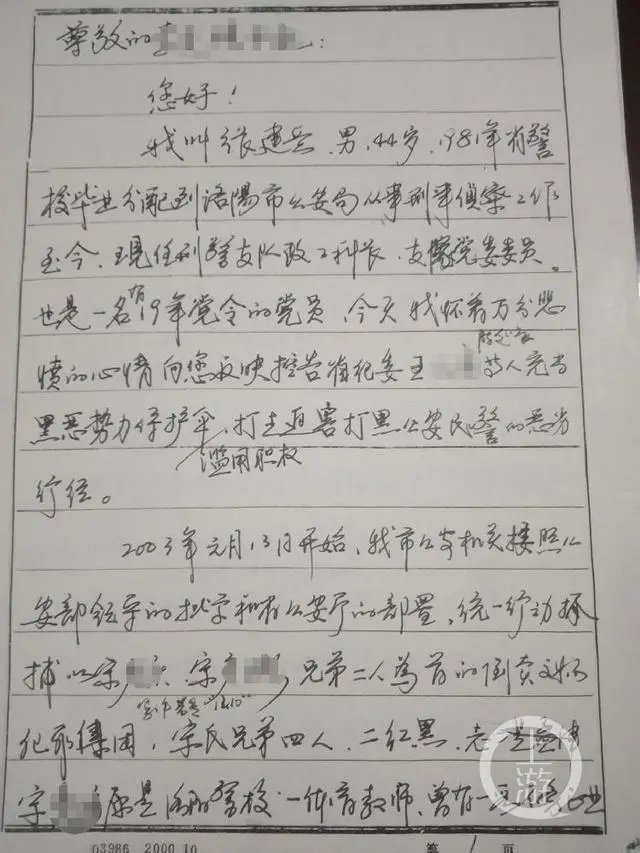 尊敬的
您好！
我叫张建芸，男，44岁，1981年省警
校毕业分配到洛阳市公安局从事刑事侦察工作
至今，现任刑警支队政工科长，支队党委委员。
也是一名有19年党令的党员，今天我怀着万分悲
愤的心情向您反映控告省纪委王 等人充当
黑恶势力保护伞，滥用职权打击迫害打黑公安民警的恶劣
行径。
2003年元月13日开始，我市公安机关按照公
安部领导的批示和省公安厅的部署，统一行动抓
捕以宋 宋 兄弟二人为首的倒卖文物
犯罪集团，宋氏兄弟四人，二红黑，老
宋 原是洛阳警校一体育教师，曾
03986 2000.10 第 1 页
上游